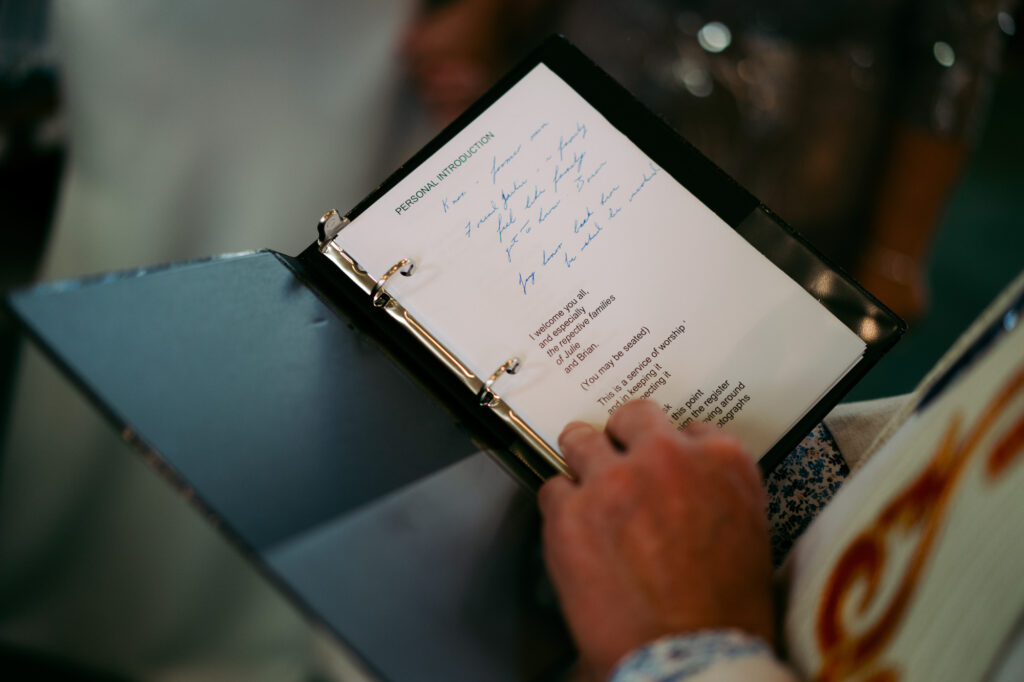 PERSONAL INTRODUCTION
Know former
Friend Julie - a family
feel like family
got to know
Joy
be
I welcome you all,
and especially
the repective families
of Julie
and Brian.
(You may be seated)
This is a service of worship
and in keeping it
pecting it
sk
this point
signn the register
ving around
otographs